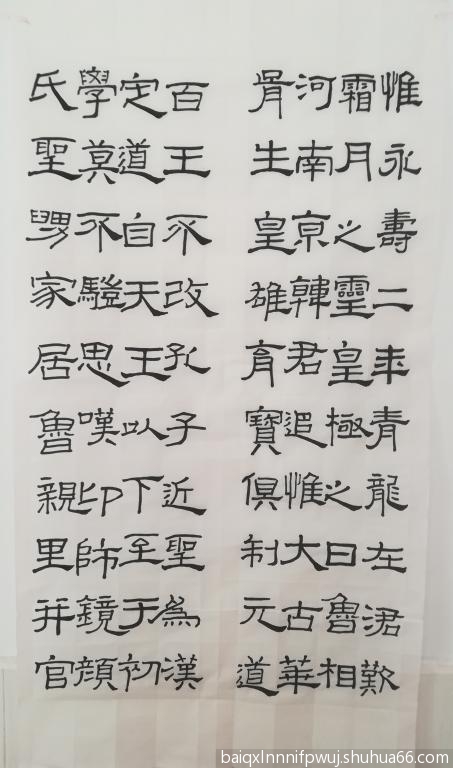 惟永壽二年青龍在涒歎
霜月之靈皇極之日魯相
河南京韓君追惟大古華
胥生皇雄育寶俱制元道
百王不改孔子近聖為漢
定道自天王以下至于初
學莫不驗思嘆卬師鏡顏
氏聖舅家居魯親里并官
baiqxlnnnifpwuj.shuhua66.com